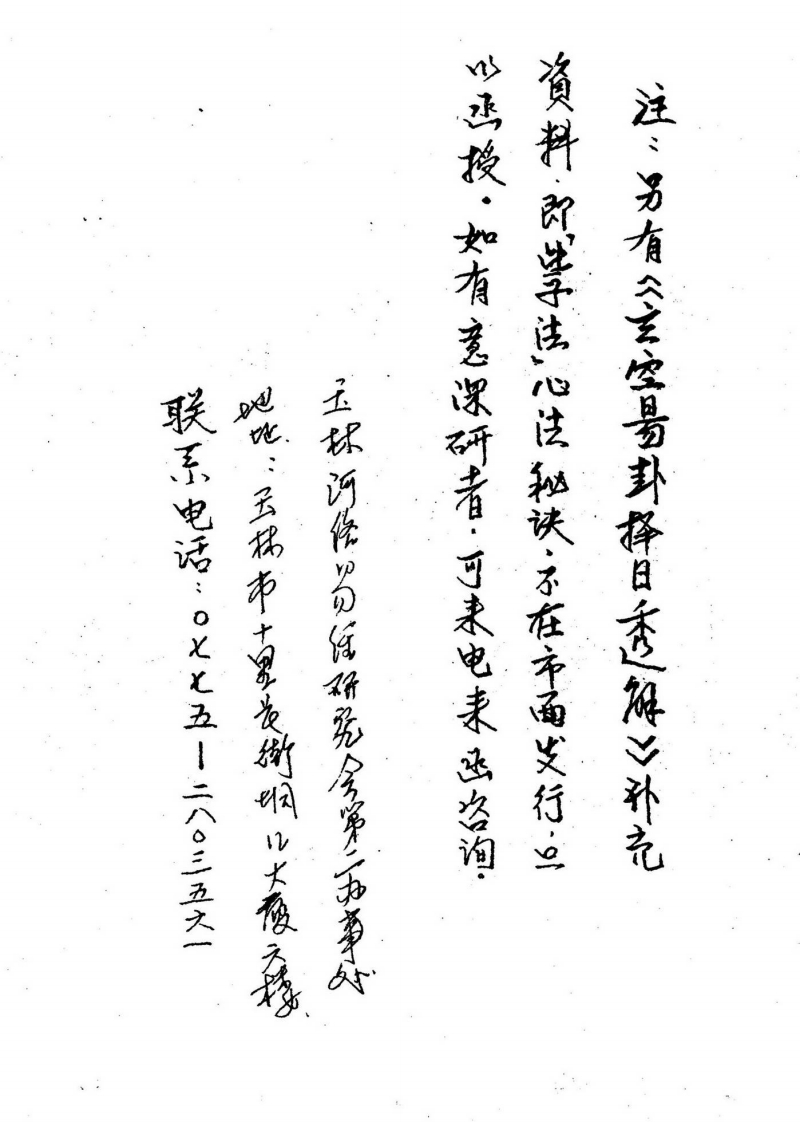 注：另有《玄空易卦择日透解》补充
資料．即“坐子法”心法秘诀．不在市面发行．只
以函授．如有意深研者．可来电来函咨询．
玉林河洛易经研究会第二办事处
地址：玉林市十里长街垌口大厦六楼
联系电话：０七七五－二八０三五六一